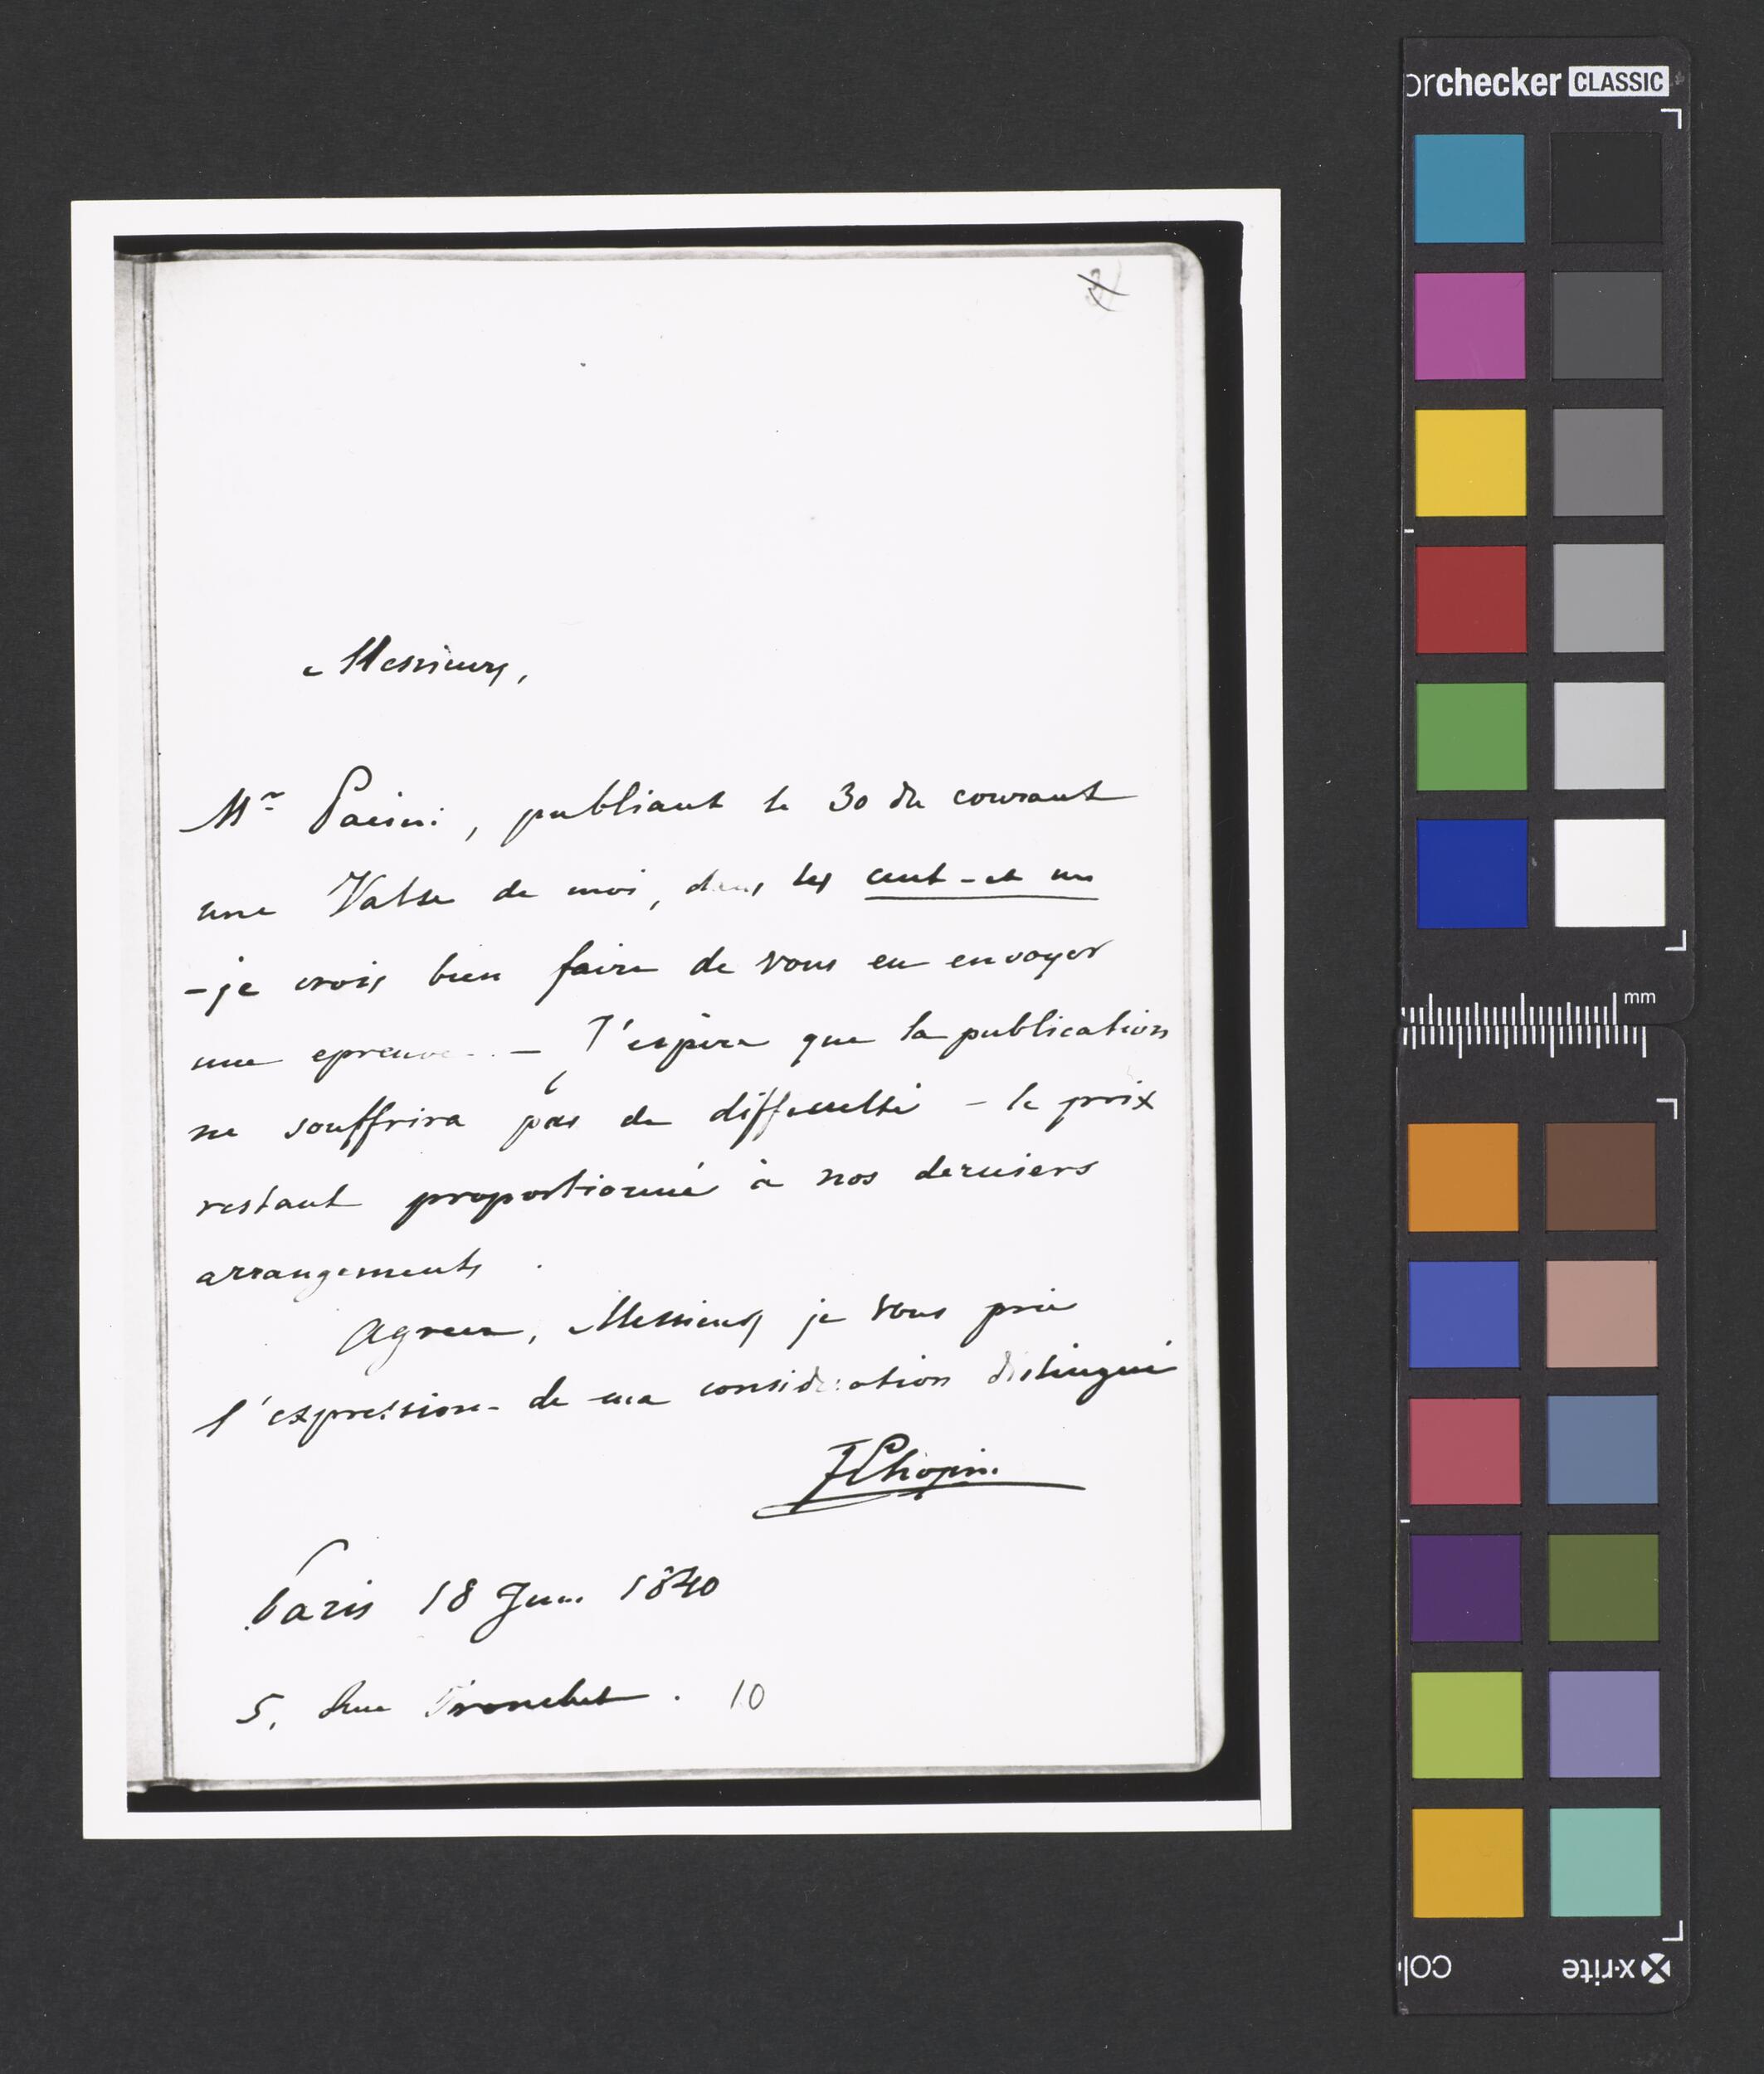 Messieurs,
Mr Pacini, publiant le 30 du courant
une Valse de moi, dans les cent-et un
- je crois bien faire de vous en envoyer
une epreuve. - J'espère que la publication
ne souffrira pas de difficulté - le prix
restant proportionné à nos derniers
arrangements.
Agréez, Messieurs je vous prie
l'expression de ma considération distingué
FChopin.
Paris 18 Juin 1840
5, Rue Tronchet. 10
orchecker CLASSIC
mm
x-rite
col